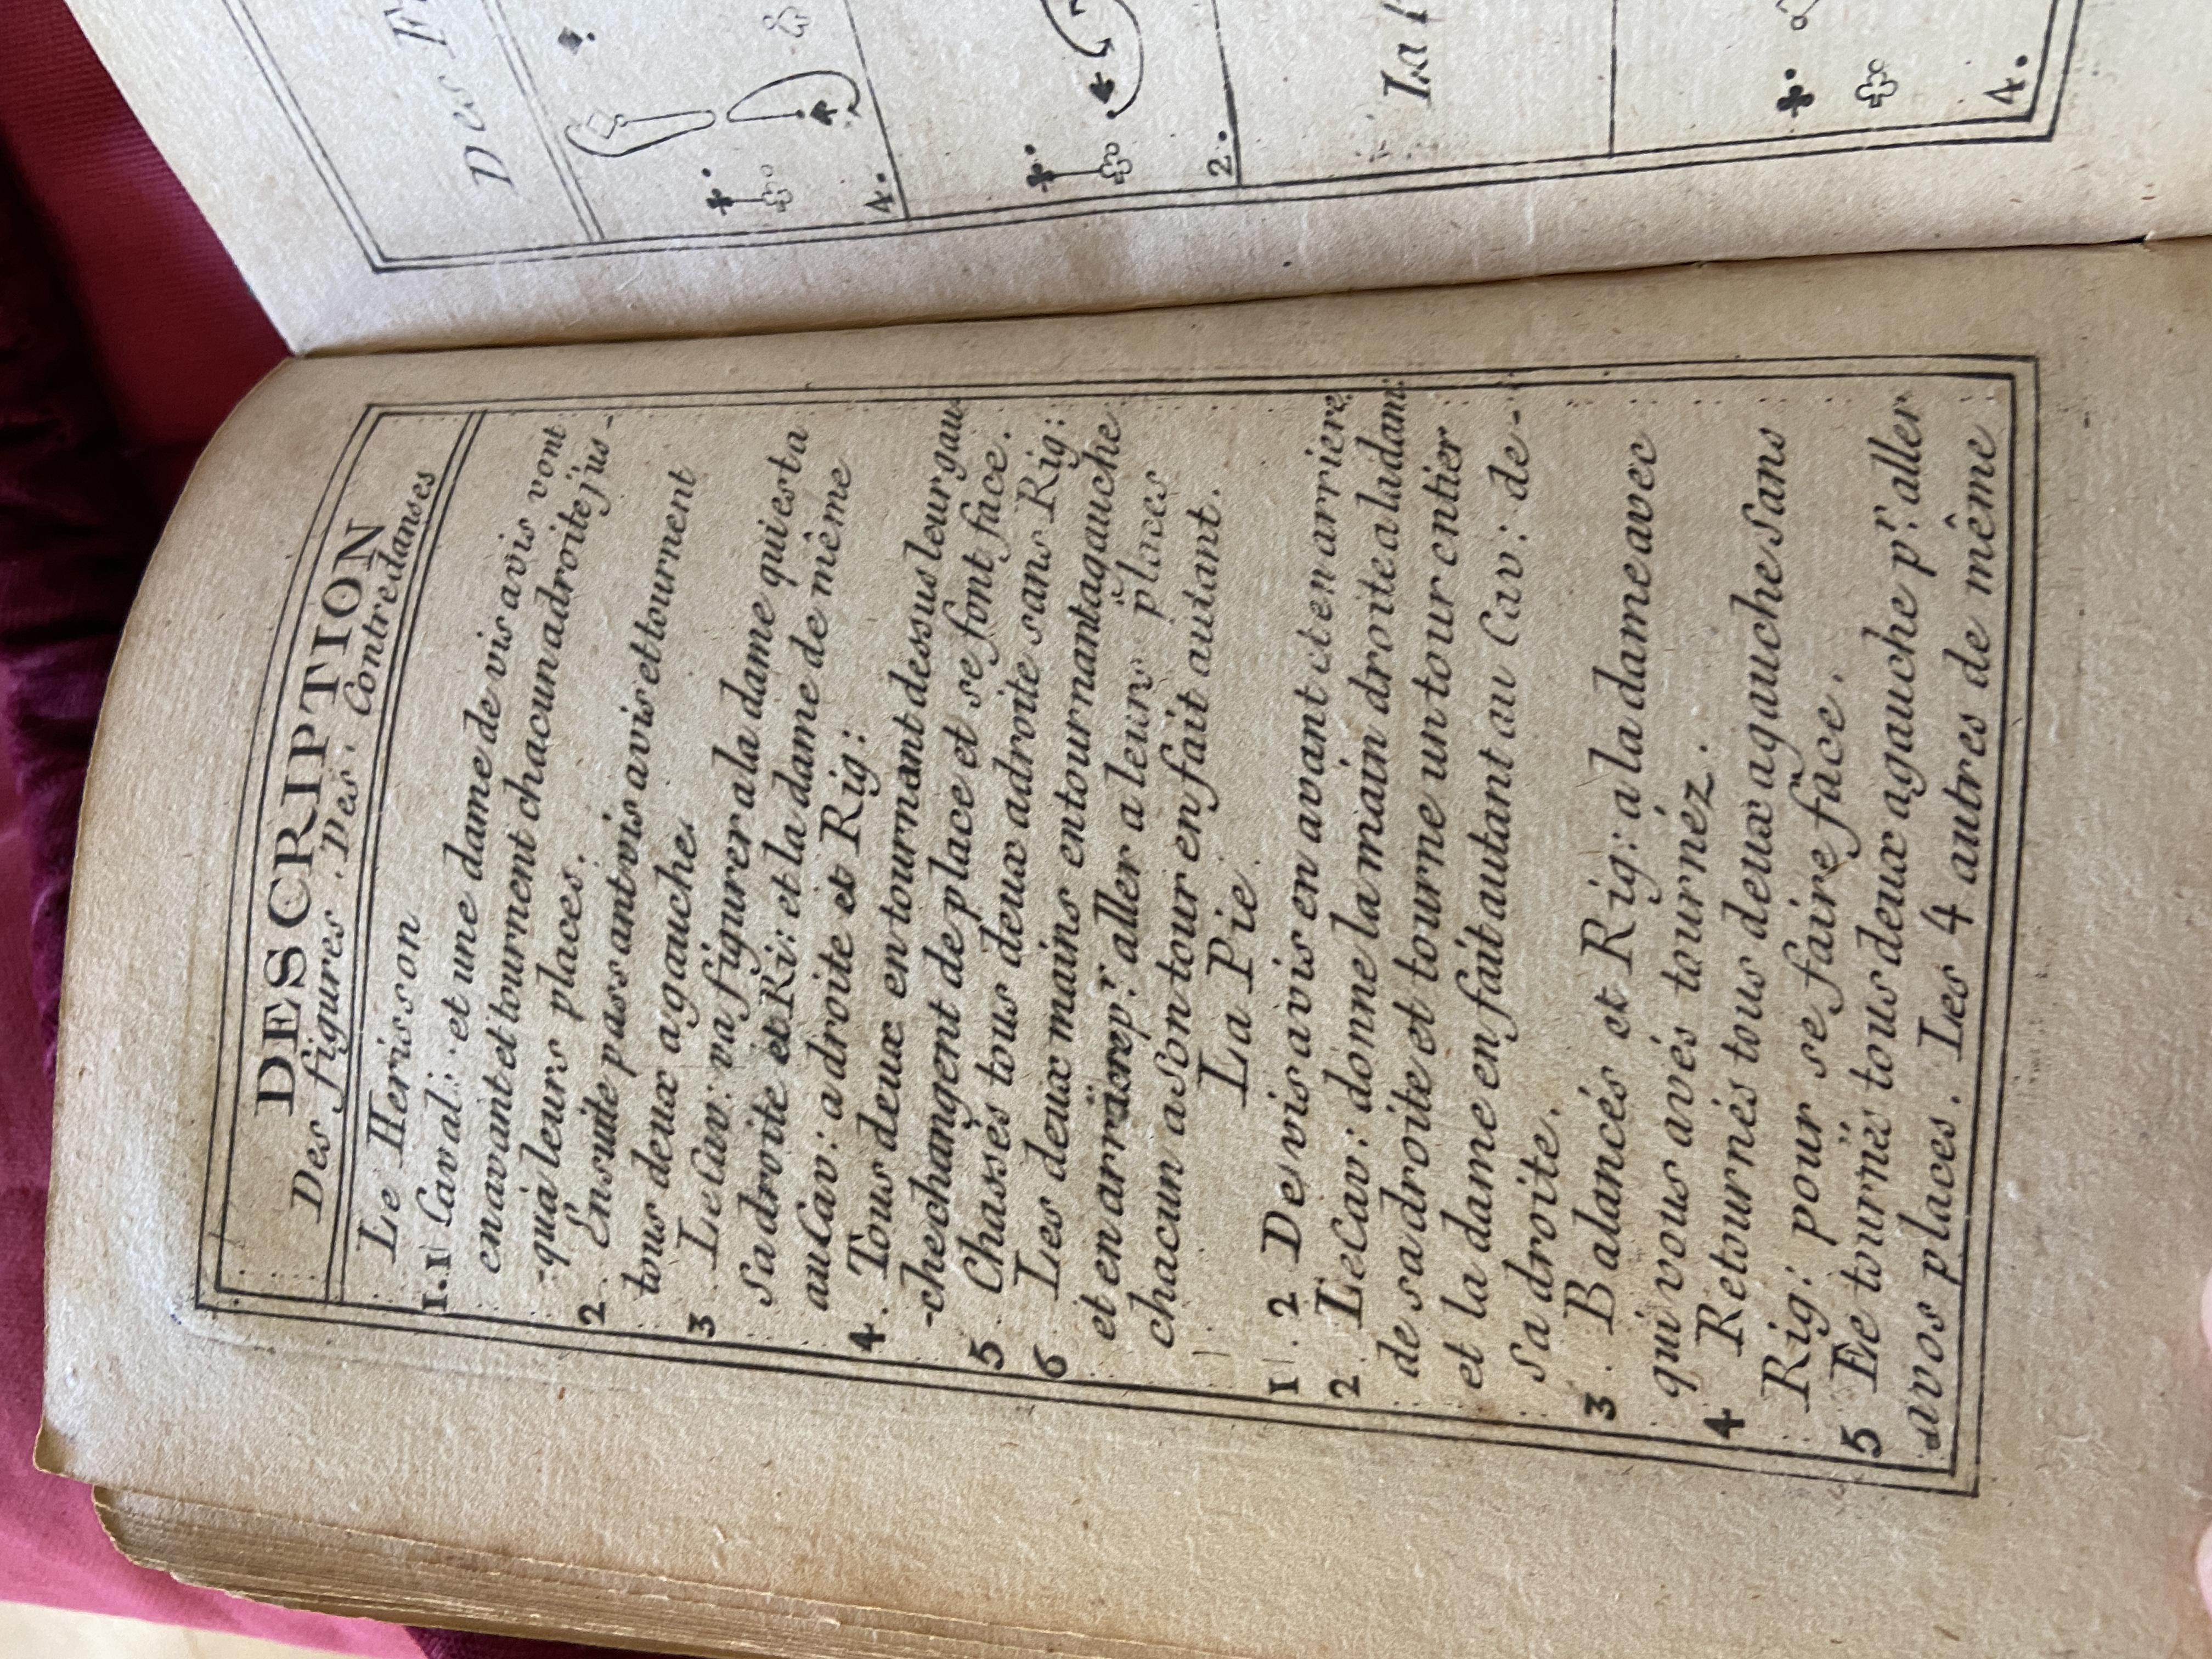 DESCRIPTION
Des figures . Des . Contredanses
Le Herisson
1.1 Caval: et une dame de vis avis vont
enavant et tournent chacun adroite jus-
-qu'a leurs places.
2 . Ensuite passant vis avis et tournent
tous deux agauche.
3 . Le Cav: va figurer ala dame qui esta
sa droite et Ri: et la dame de même
au Cav: a droite et Rig:
4 . Tous deux en tournant dessus leur gau
-chechangent de place et se font face.
5 . Chassés tous deux adroite sans Rig:
6 Les deux mains entournantagauche
et en arriere pr. aller a leurs places
chacun a son tour en fait autant.
La Pie
1 . 2 De vis avis en avant et en arriere
2 . Le Cav: donne la main droite a la dam:
de sa droite et tourne un tour entier
et la dame en fait autant au Cav: de-
sa droite.
3 . Balancés et Rig: a la dame avec
qui vous avés tournéz.
4 Retournés tous deux agauche sans
Rig: pour se faire face.
5 Ee tournés tous deux agauche pr. aller
avos places. Les 4 autres de même
Des F
4.
2.
La
4.